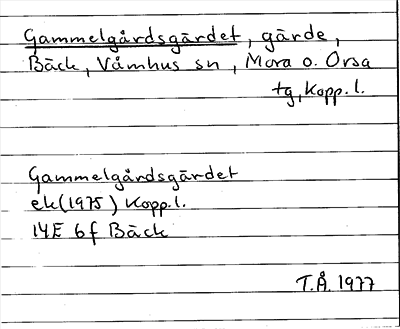 Gammelgårdsgärdet, gärde,
Bäck, Våmhus sn, Mora o. Orsa
tg, Kopp. l.
Gammelgårdsgärdet
ek (1975) Kopp. l.
14E 6f Bäck
T.Å. 1977